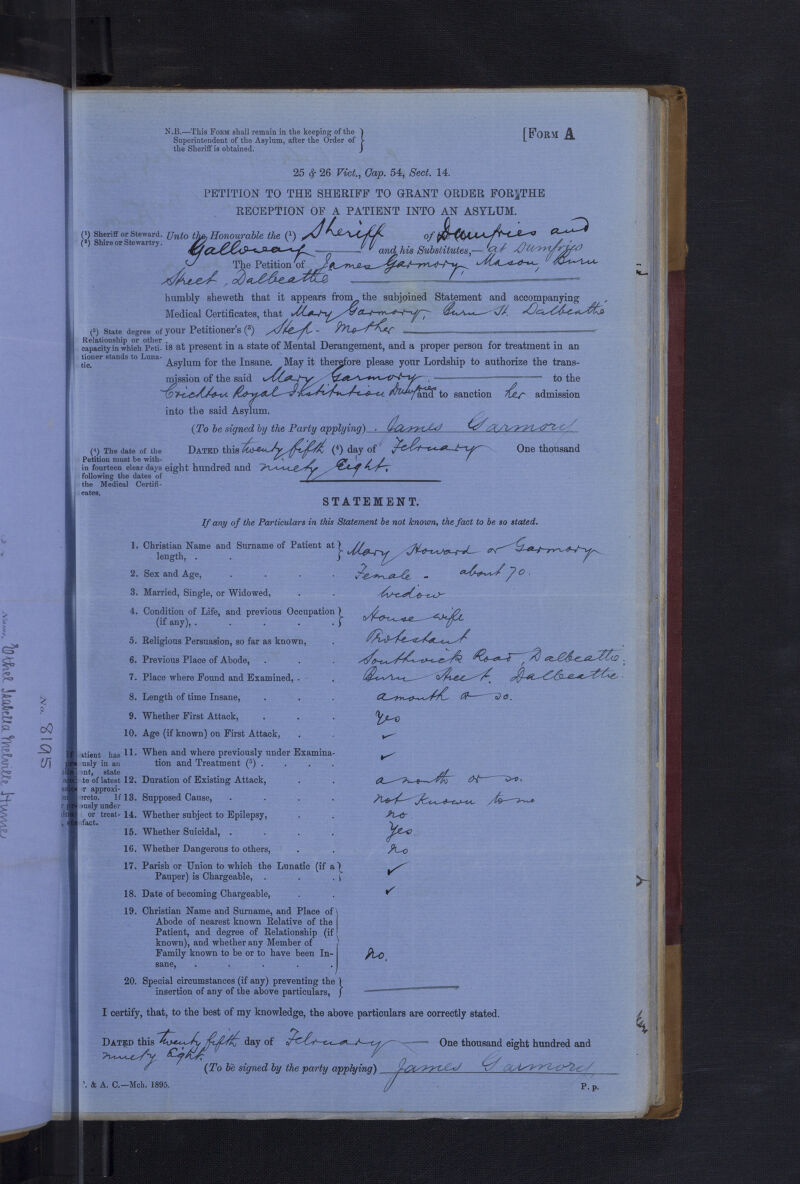 N.B.—This Form shall remain in the keeping of the
Superintendent of the Asylum, after the Order of
the Sheriff is obtained.
[Form A
25 & 26 Vict., Cap. 54, Sect. 14.
PETITION TO THE SHERIFF TO GRANT ORDER FOR THE
RECEPTION OF A PATIENT INTO AN ASYLUM.
(1) Sheriff or Steward.
(2) Shire or Stewartry.
Unto the Honourable the (1) Sheriff of Dumfries and
Galloway and his Substitutes,— at Dumfries
The Petition of James Garmory, Mason, Burn
Street, Dalbeattie
humbly sheweth that it appears from the subjoined Statement and accompanying
Medical Certificates, that Mary Garmory, Burn St. Dalbeattie
(3) State degree of
Relationship or other
capacity in which Peti-
tioner stands to Luna-
tic.
your Petitioner's (3) Step-Mother
is at present in a state of Mental Derangement, and a proper person for treatment in an
Asylum for the Insane. May it therefore please your Lordship to authorize the trans-
mission of the said Mary Garmory to the
Crichton Royal Institution Dumfries and to sanction her admission
into the said Asylum.
(To be signed by the Party applying) . James Garmory
(4) The date of the
Petition must be with-
in fourteen clear days
following the dates of
the Medical Certifi-
cates.
Dated this twenty fifth (4) day of February One thousand
eight hundred and ninety Eight.
STATEMENT.
If any of the Particulars in this Statement be not known, the fact to be so stated.
1. Christian Name and Surname of Patient at
length, . . Mary Howard or Garmory
2. Sex and Age, . . . . Female - about 70.
3. Married, Single, or Widowed, . . Widow
4. Condition of Life, and previous Occupation
(if any), . . . . . House wife
5. Religious Persuasion, so far as known, . Protestant
6. Previous Place of Abode, . . . Southwick Road, Dalbeattie.
7. Place where Found and Examined, . . Burn Street. Dalbeattie.
8. Length of time Insane, . . a month or so.
9. Whether First Attack, . . . Yes
10. Age (if known) on First Attack, . . ✓
11. When and where previously under Examina-
tion and Treatment (5) . . . . ✓
12. Duration of Existing Attack, . . a month or so.
13. Supposed Cause, . . . . not Known to me
14. Whether subject to Epilepsy, . . no
15. Whether Suicidal, . . . . Yes
16. Whether Dangerous to others, . . no
17. Parish or Union to which the Lunatic (if a
Pauper) is Chargeable, . . . ✓
18. Date of becoming Chargeable, . . ✓
19. Christian Name and Surname, and Place of
Abode of nearest known Relative of the
Patient, and degree of Relationship (if
known), and whether any Member of
Family known to be or to have been In-
sane, . . . . . no.
20. Special circumstances (if any) preventing the
insertion of any of the above particulars,
I certify, that, to the best of my knowledge, the above particulars are correctly stated.
Dated this twenty fifth day of February One thousand eight hundred and
ninety Eight.
(To be signed by the party applying) James Garmory
& A. C.—Mch. 1895.
P. p.
atient has
usly in an
ent, state
te of latest
r approxi-
ereto. If
ously under
or treat-
fact.
No. 8195
Name, Ethel Isabella Melville Hume